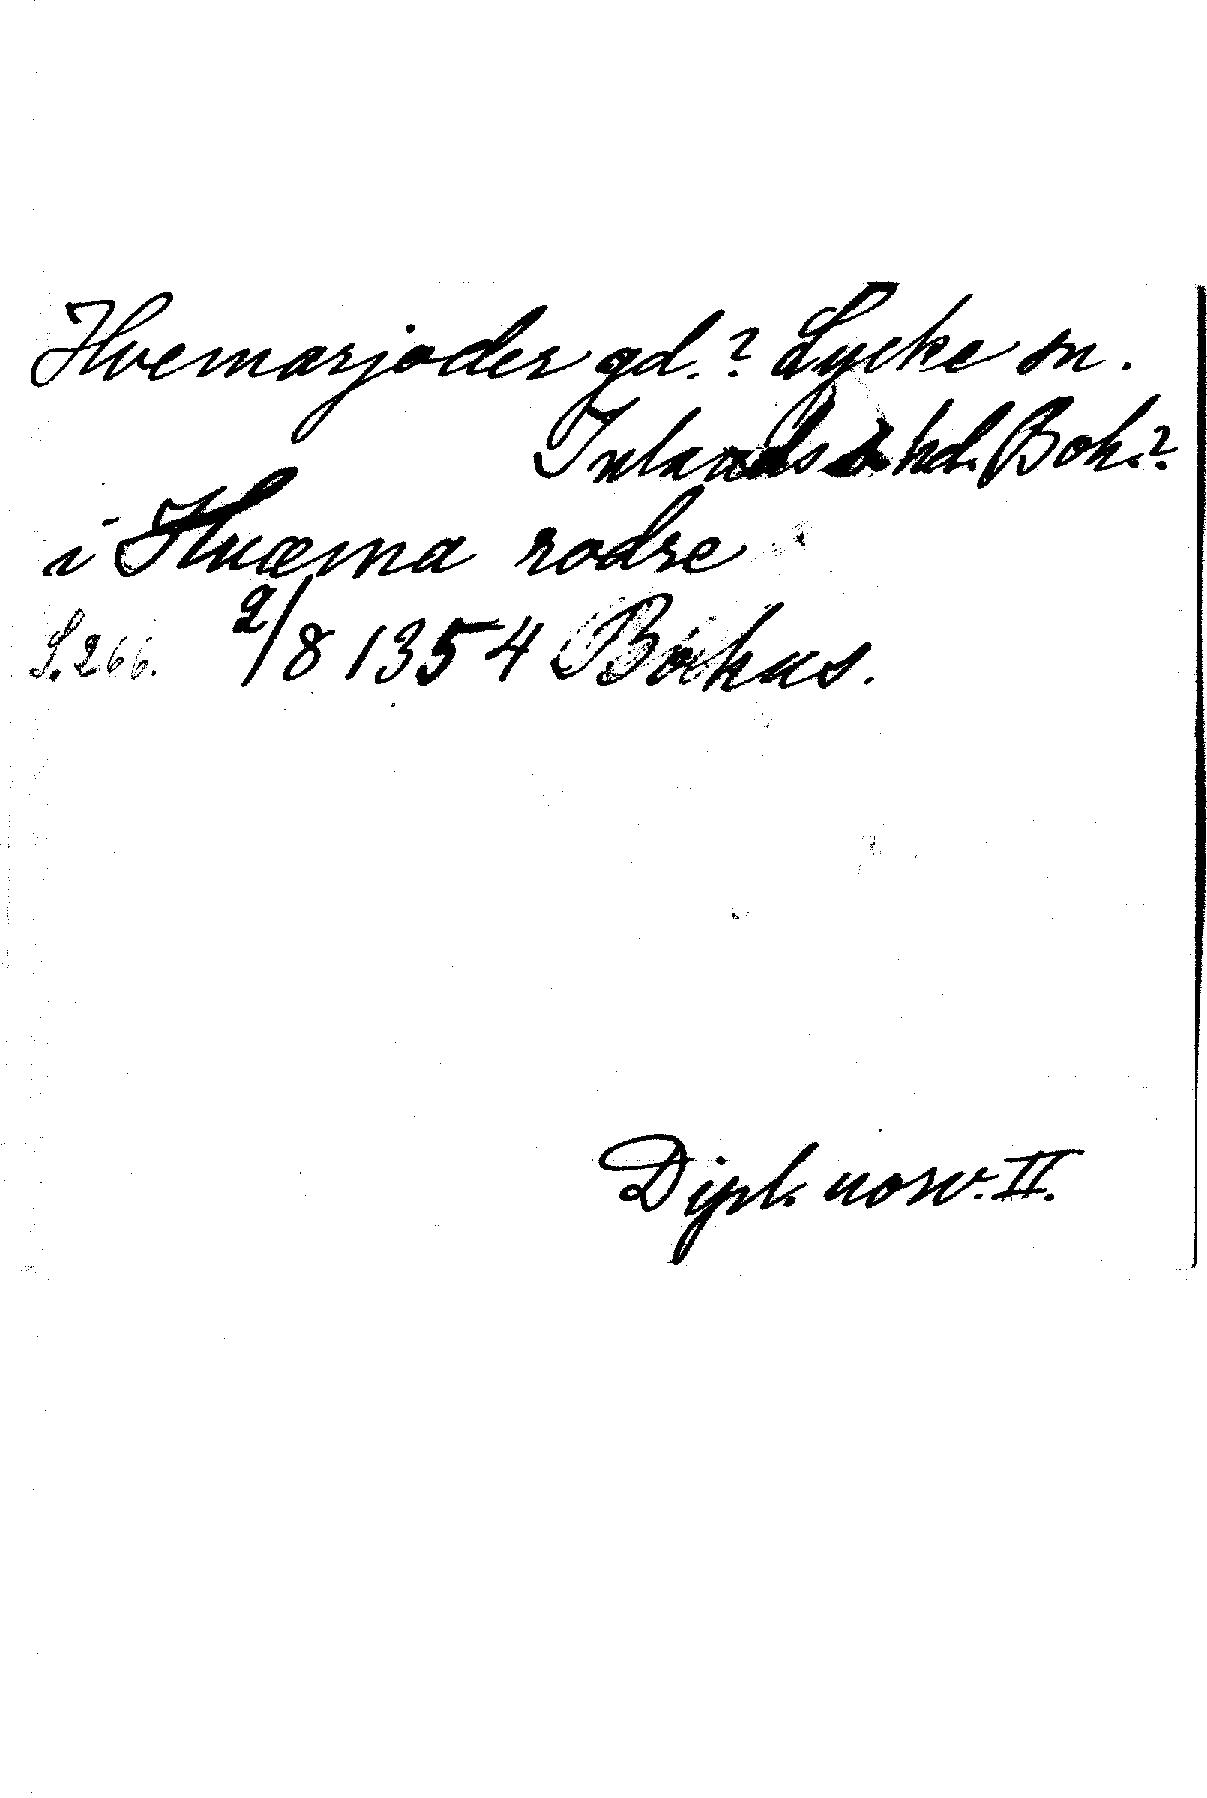 Hvemarjoder gd.? Lycke sn.
Inlands s. hd. Boh.?
i Huæma rodre
S. 266. 2/8 1354 Bohus.
Dipl. norv. II.